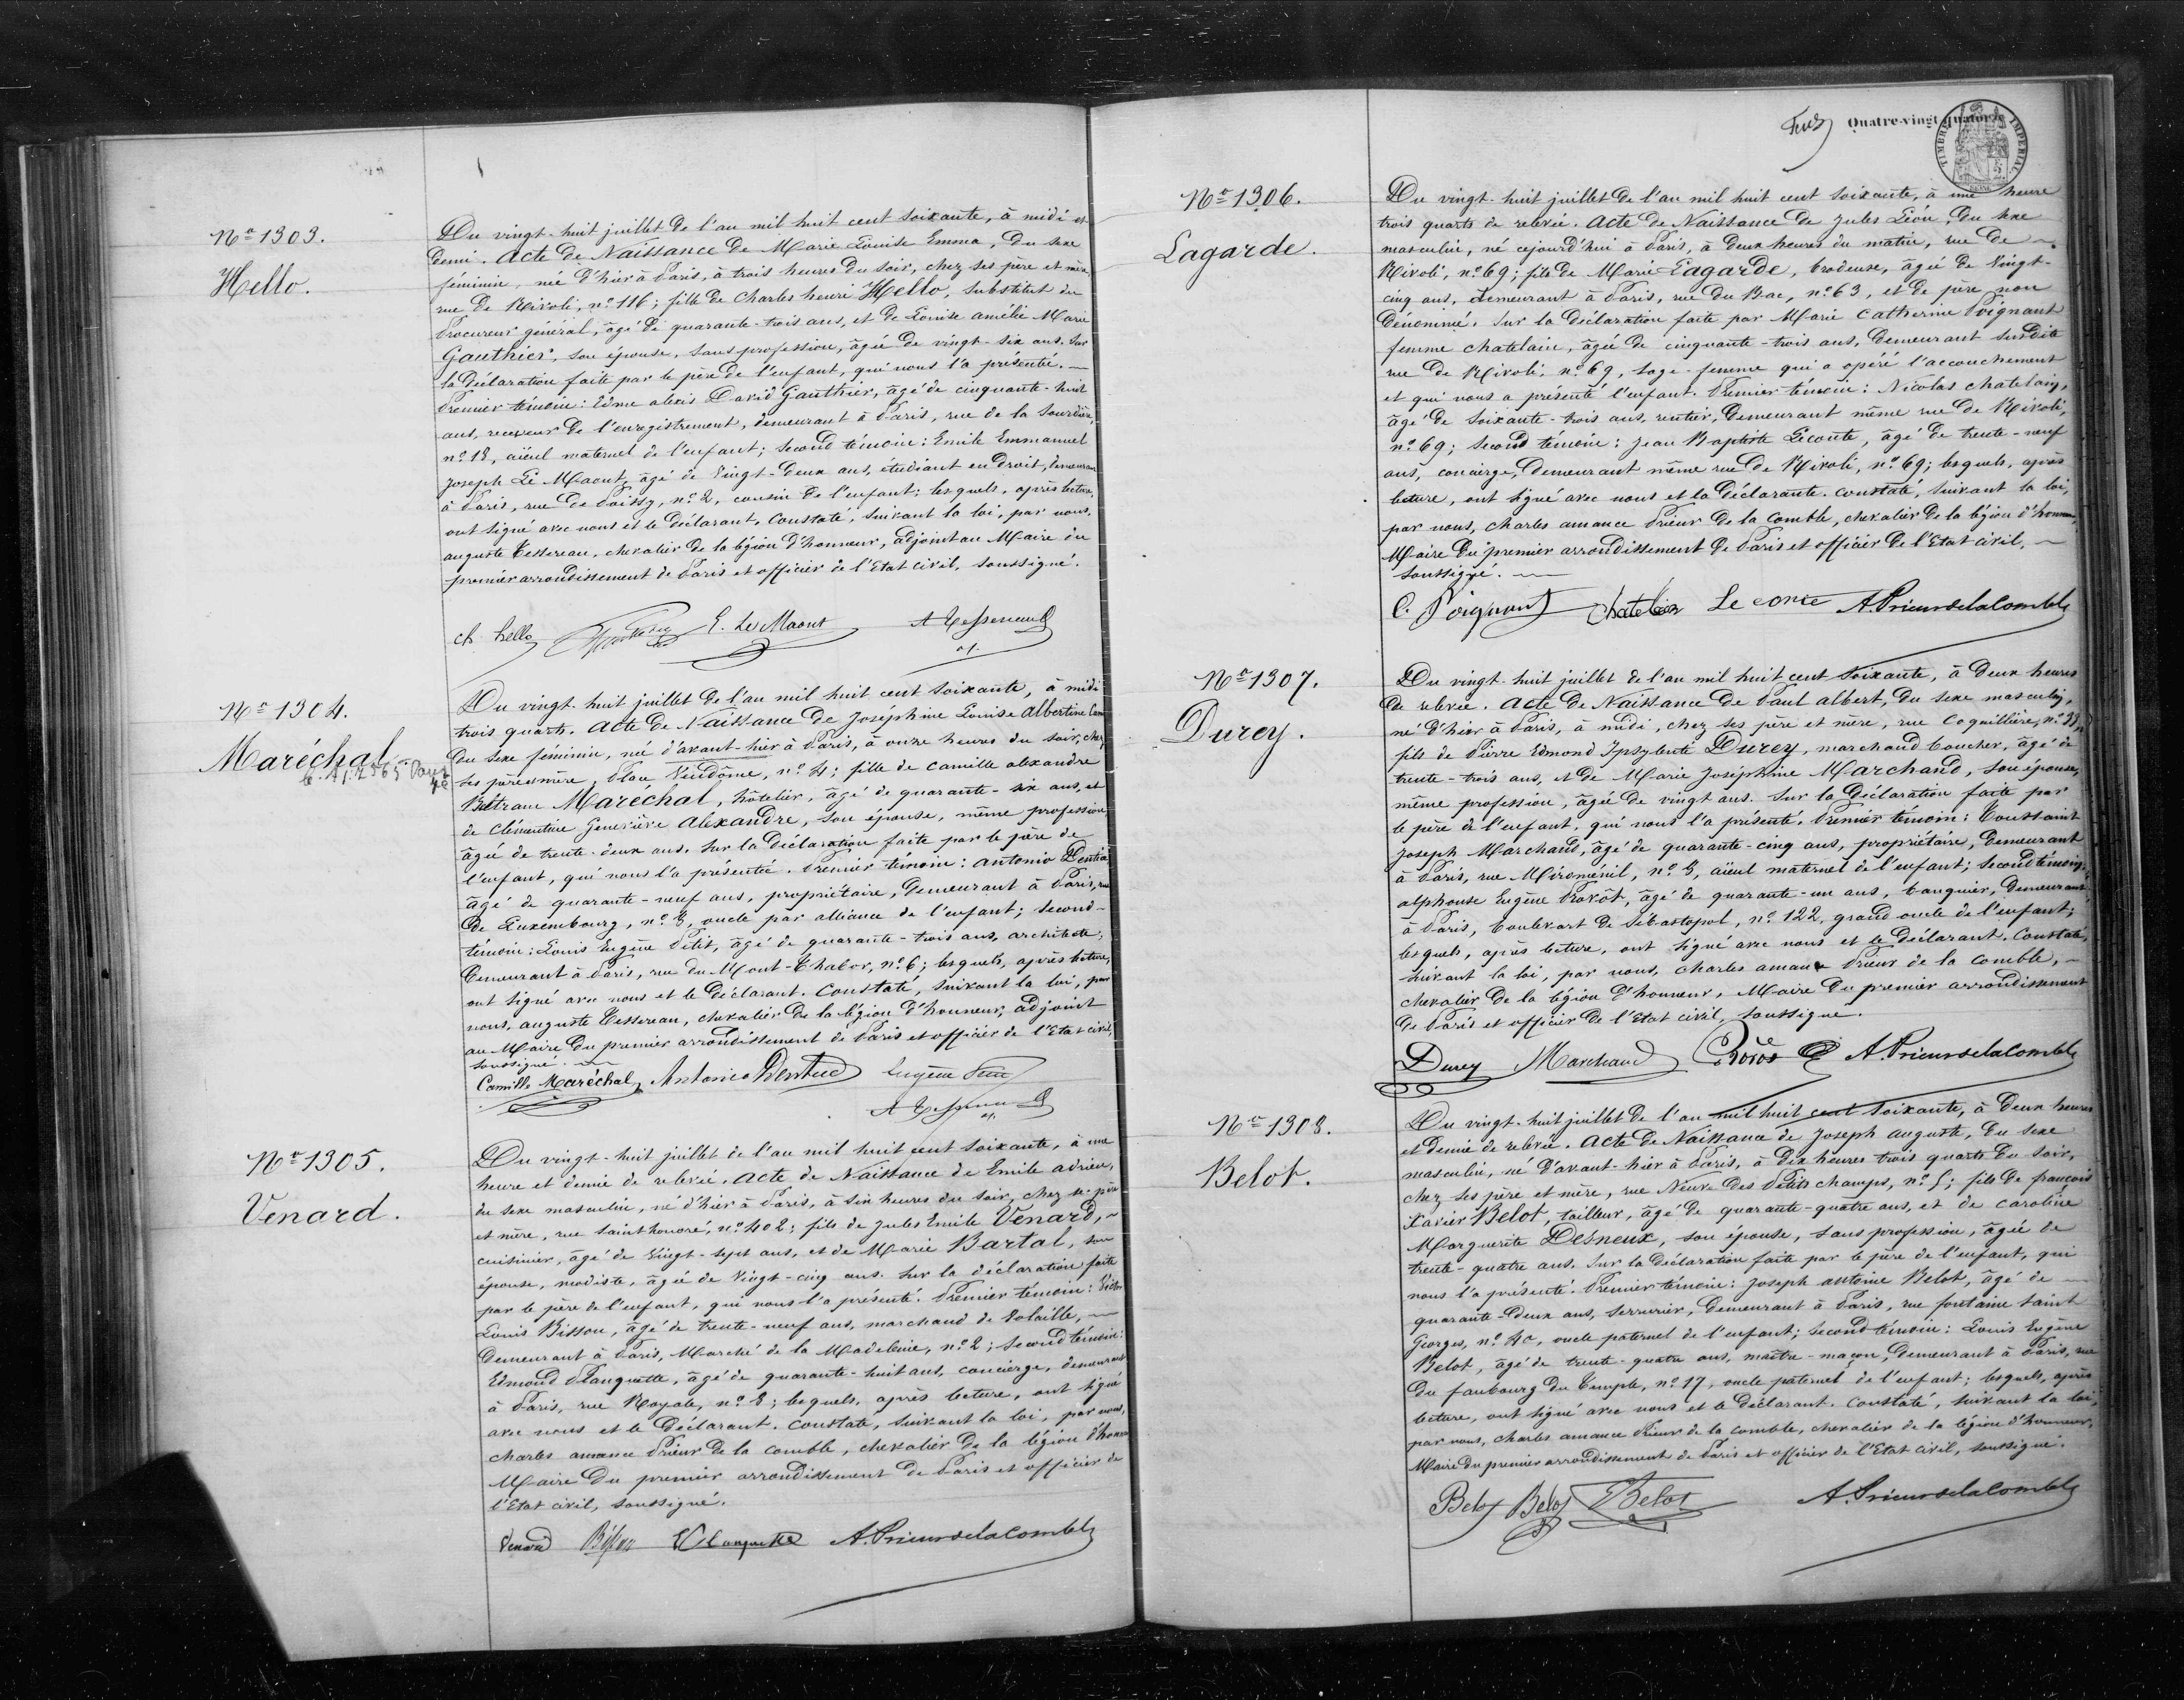 Nº 1303.
Hello.
Du vingt-huit juillet de l'an mil huit cent soixante, à midi et
demi. Acte de Naissance de Marie Louise Emma, du sexe
féminin, née d'hier à Paris, à trois heures du soir, chez ses père et mère,
rue de Rivoli, nº 116; fille de Charles henri Hello, substitut du
Procureur général, âgé de quarante-trois ans, et de Louise amélie Marie
Gauthier, son épouse, sans profession, âgée de vingt-six ans. Sur
la déclaration faite par le père de l'enfant, qui nous l'a présenté.
Premier témoin: Edme alexis David Gauthier, âgé de cinquante-huit
ans, receveur de l'enregistrement, demeurant à Paris, rue de la Sourdière,
nº 18, aïeul maternel de l'enfant; second témoin: Emile Emmanuel
Joseph Le Maout, âgé de vingt-deux ans, étudiant en droit, demeurant
à Paris, rue de Poissy, nº 2, cousin de l'enfant; lesquels, après lecture,
ont signé avec nous et le déclarant. Constaté, suivant la loi, par nous,
auguste Tessereau, chevalier de la légion d'honneur, adjoint au Maire du
premier arrondissement de Paris et officier de l'Etat civil, soussigné.
ch. hello E. Le Maout A Tessereau
Nº 1304.
Maréchal
Du vingt-huit juillet de l'an mil huit cent soixante, à midi
trois quarts. Acte de Naissance de Joséphine Louise Albertine
du sexe féminin, née d'avant-hier à Paris, à onze heures du soir, chez
ses père et mère, Place Vendôme, nº 4; fille de Camille alexandre
Maréchal, hôtelier, âgé de quarante-six ans, et
de Clémentine Geneviève Alexandre, son épouse, même profession
âgée de trente-deux ans. Sur la déclaration faite par le père de
l'enfant, qui nous l'a présentée. Premier témoin: antonio
âgé de quarante-neuf ans, propriétaire, demeurant à Paris, rue
de Luxembourg, nº 3, oncle par alliance de l'enfant; second-
témoin: Louis Eugène Petit, âgé de quarante-trois ans, architecte,
demeurant à Paris, rue du Mont-Thabor, nº 6; lesquels, après lecture,
ont signé avec nous et le déclarant. Constaté, suivant la loi, par
nous, auguste Tessereau, chevalier de la légion d'honneur, adjoint
au Maire du premier arrondissement de Paris et officier de l'Etat civil,
soussigné.
Camille Maréchal Antonio Eugène Petit
A Tessereau
Nº 1305.
Venard.
Du vingt-huit juillet de l'an mil huit cent soixante, à une
heure et demie de relevée. Acte de Naissance de Emile adrien,
du sexe masculin, né d'hier à Paris, à six heures du soir, chez ses père
et mère, rue Saint honoré, nº 402; fils de Jules Emile Venard,
cuisinier, âgé de vingt-sept ans, et de Marie Bartal, son
épouse, modiste, âgée de vingt-cinq ans. Sur la déclaration faite
par le père de l'enfant, qui nous l'a présenté. Premier témoin: Victor
Louis Bisson, âgé de trente-neuf ans, marchand de volaille,
demeurant à Paris, Marché de la Madeleine, nº 2; second témoin:
Edmond Planquette, âgé de quarante-huit ans, concierge, demeurant
à Paris, rue Royale, nº 8; lesquels, après lecture, ont signé
avec nous et le déclarant. Constaté, suivant la loi, par nous,
Charles amance Prieur de la Comble, chevalier de la légion d'honneur
Maire du premier arrondissement de Paris et officier de
l'Etat civil, soussigné.
Venard Bisson Planquette A. Prieur de la Comble
Quatre-vingt quatorze
TIMBRE IMPERIAL
Nº 1306.
Lagarde.
Du vingt-huit juillet de l'an mil huit cent soixante, à une heure
trois quarts de relevée. Acte de Naissance de Jules Léon, du sexe
masculin, né cejourd'hui à Paris, à deux heures du matin, rue de
Rivoli, nº 69; fils de Marie Lagarde, brodeuse, âgée de vingt-
cinq ans, demeurant à Paris, rue du Bac, nº 63, et de père non
dénommé. Sur la déclaration faite par Marie Catherine Poignant
femme chatelain, âgée de cinquante-trois ans, demeurant susdite
rue de Rivoli, nº 69, sage-femme qui a opéré l'accouchement
et qui nous a présenté l'enfant. Premier témoin: Nicolas chatelain,
âgé de soixante-trois ans, rentier, demeurant même rue de Rivoli,
nº 69; second témoin: Jean Baptiste Leconte, âgé de trente-neuf
ans, concierge, demeurant même rue de Rivoli, nº 69; lesquels, après
lecture, ont signé avec nous et la déclarante. Constaté, suivant la loi,
par nous, Charles amance Prieur de la Comble, chevalier de la légion d'honneur,
Maire du premier arrondissement de Paris et officier de l'Etat civil,
soussigné.
C. Poignant Chatelain Le conte A. Prieur de la Comble
Nº 1307.
Durey.
Du vingt-huit juillet de l'an mil huit cent soixante, à deux heures
de relevée. Acte de Naissance de Paul albert, du sexe masculin,
né d'hier à Paris, à midi, chez ses père et mère, rue Coquillière, nº 33
fils de Pierre Edmond Durey, marchand boucher, âgé de
trente-trois ans, et de Marie Joséphine Marchand, son épouse,
même profession, âgée de vingt ans. Sur la déclaration faite par
le père de l'enfant, qui nous l'a présenté. Premier témoin: Toussaint
Joseph Marchand, âgé de quarante-cinq ans, propriétaire, demeurant
à Paris, rue Miroménil, nº 3, aïeul maternel de l'enfant; second témoin:
alphonse Eugène Provôt, âgé de quarante-un ans, banquier, demeurant
à Paris, boulevart de Sébastopol, nº 122, grand oncle de l'enfant;
lesquels, après lecture, ont signé avec nous et le déclarant. Constaté,
suivant la loi, par nous, Charles amance Prieur de la Comble,
chevalier de la légion d'honneur, Maire du premier arrondissement
de Paris et officier de l'Etat civil, soussigné.
Durey Marchand A. Prieur de la Comble
Nº 1308.
Belot.
Du vingt-huit juillet de l'an mil huit cent soixante, à deux heures
et demie de relevée. Acte de Naissance de Joseph auguste, du sexe
masculin, né d'avant-hier à Paris, à dix heures trois quarts du soir,
chez ses père et mère, rue Neuve des Petits champs, nº 5; fils de françois
Xavier Belot, tailleur, âgé de quarante-quatre ans, et de Caroline
Marguerite Desneux, son épouse, sans profession, âgée de
trente-quatre ans. Sur la déclaration faite par le père de l'enfant, qui
nous l'a présenté. Premier témoin: Joseph antoine Belot, âgé de
quarante-deux ans, serrurier, demeurant à Paris, rue fontaine saint
Georges, nº 40, oncle paternel de l'enfant; second témoin: Louis Eugène
Belot, âgé de trente-quatre ans, maître-maçon, demeurant à Paris, rue
du faubourg du Temple, nº 17, oncle paternel de l'enfant; lesquels, après
lecture, ont signé avec nous et le déclarant. Constaté, suivant la loi,
par nous, Charles amance Prieur de la Comble, chevalier de la légion d'honneur,
Maire du premier arrondissement de Paris et officier de l'Etat civil, soussigné.
Belot Belot Belot A. Prieur de la Comble